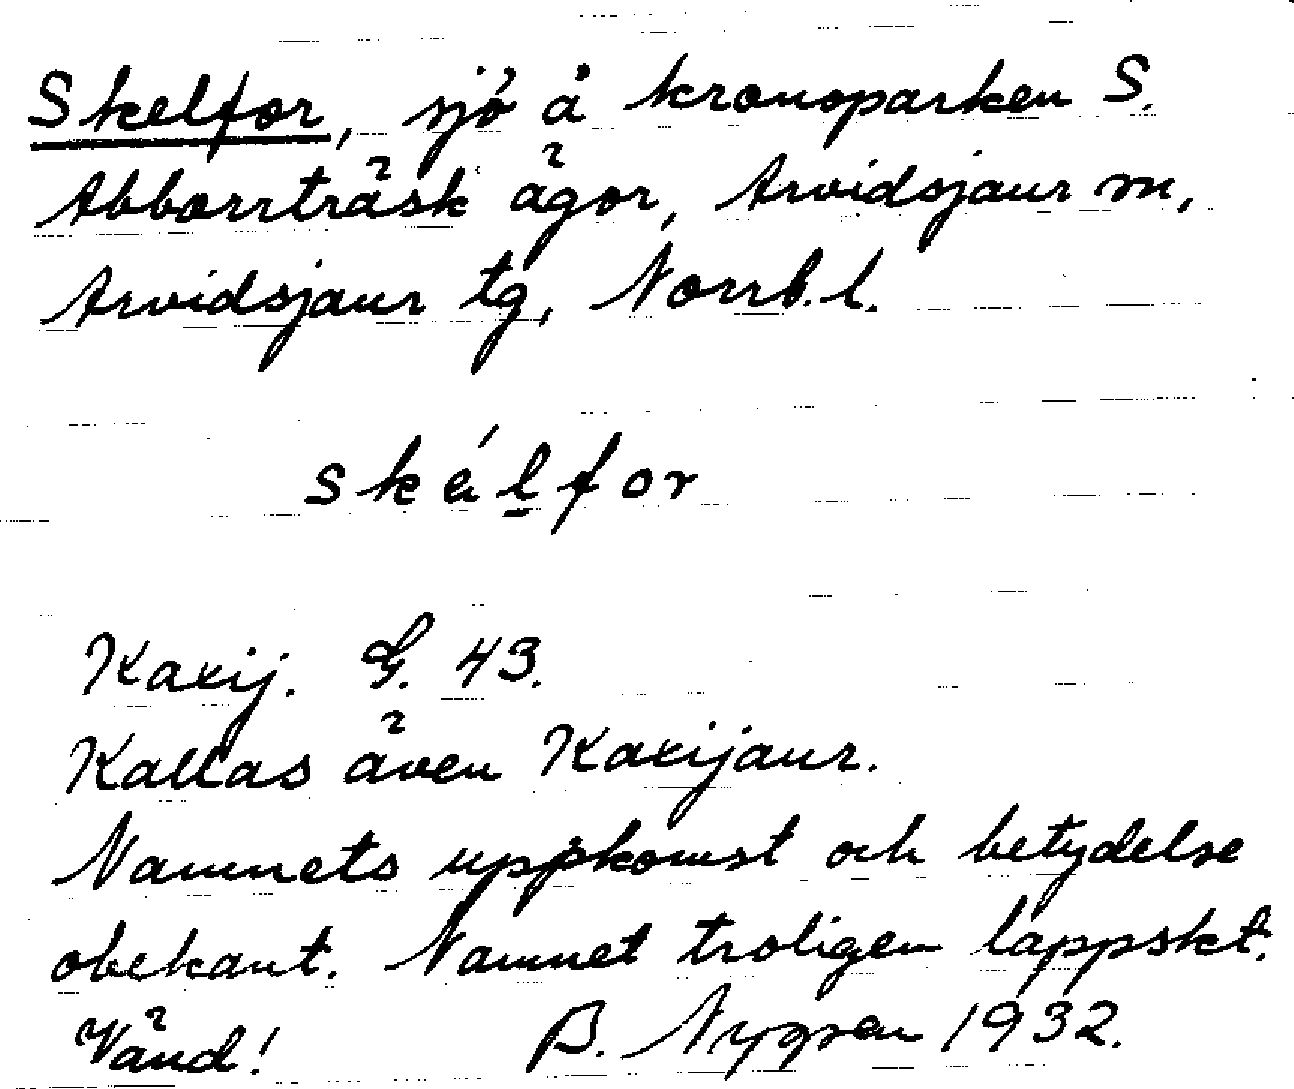 Skelfor, sjö å kronoparken S.
Abborrträsk ägor, Arvidsjaur sn,
Arvidsjaur tg, Norrb. l.
skélfor
Kaxij. G. 43.
Kallas även Kaxijaur.
Namnets uppkomst och betydelse
obekant. Namnet troligen lappskt.
Vänd! B. Nygren 1932.